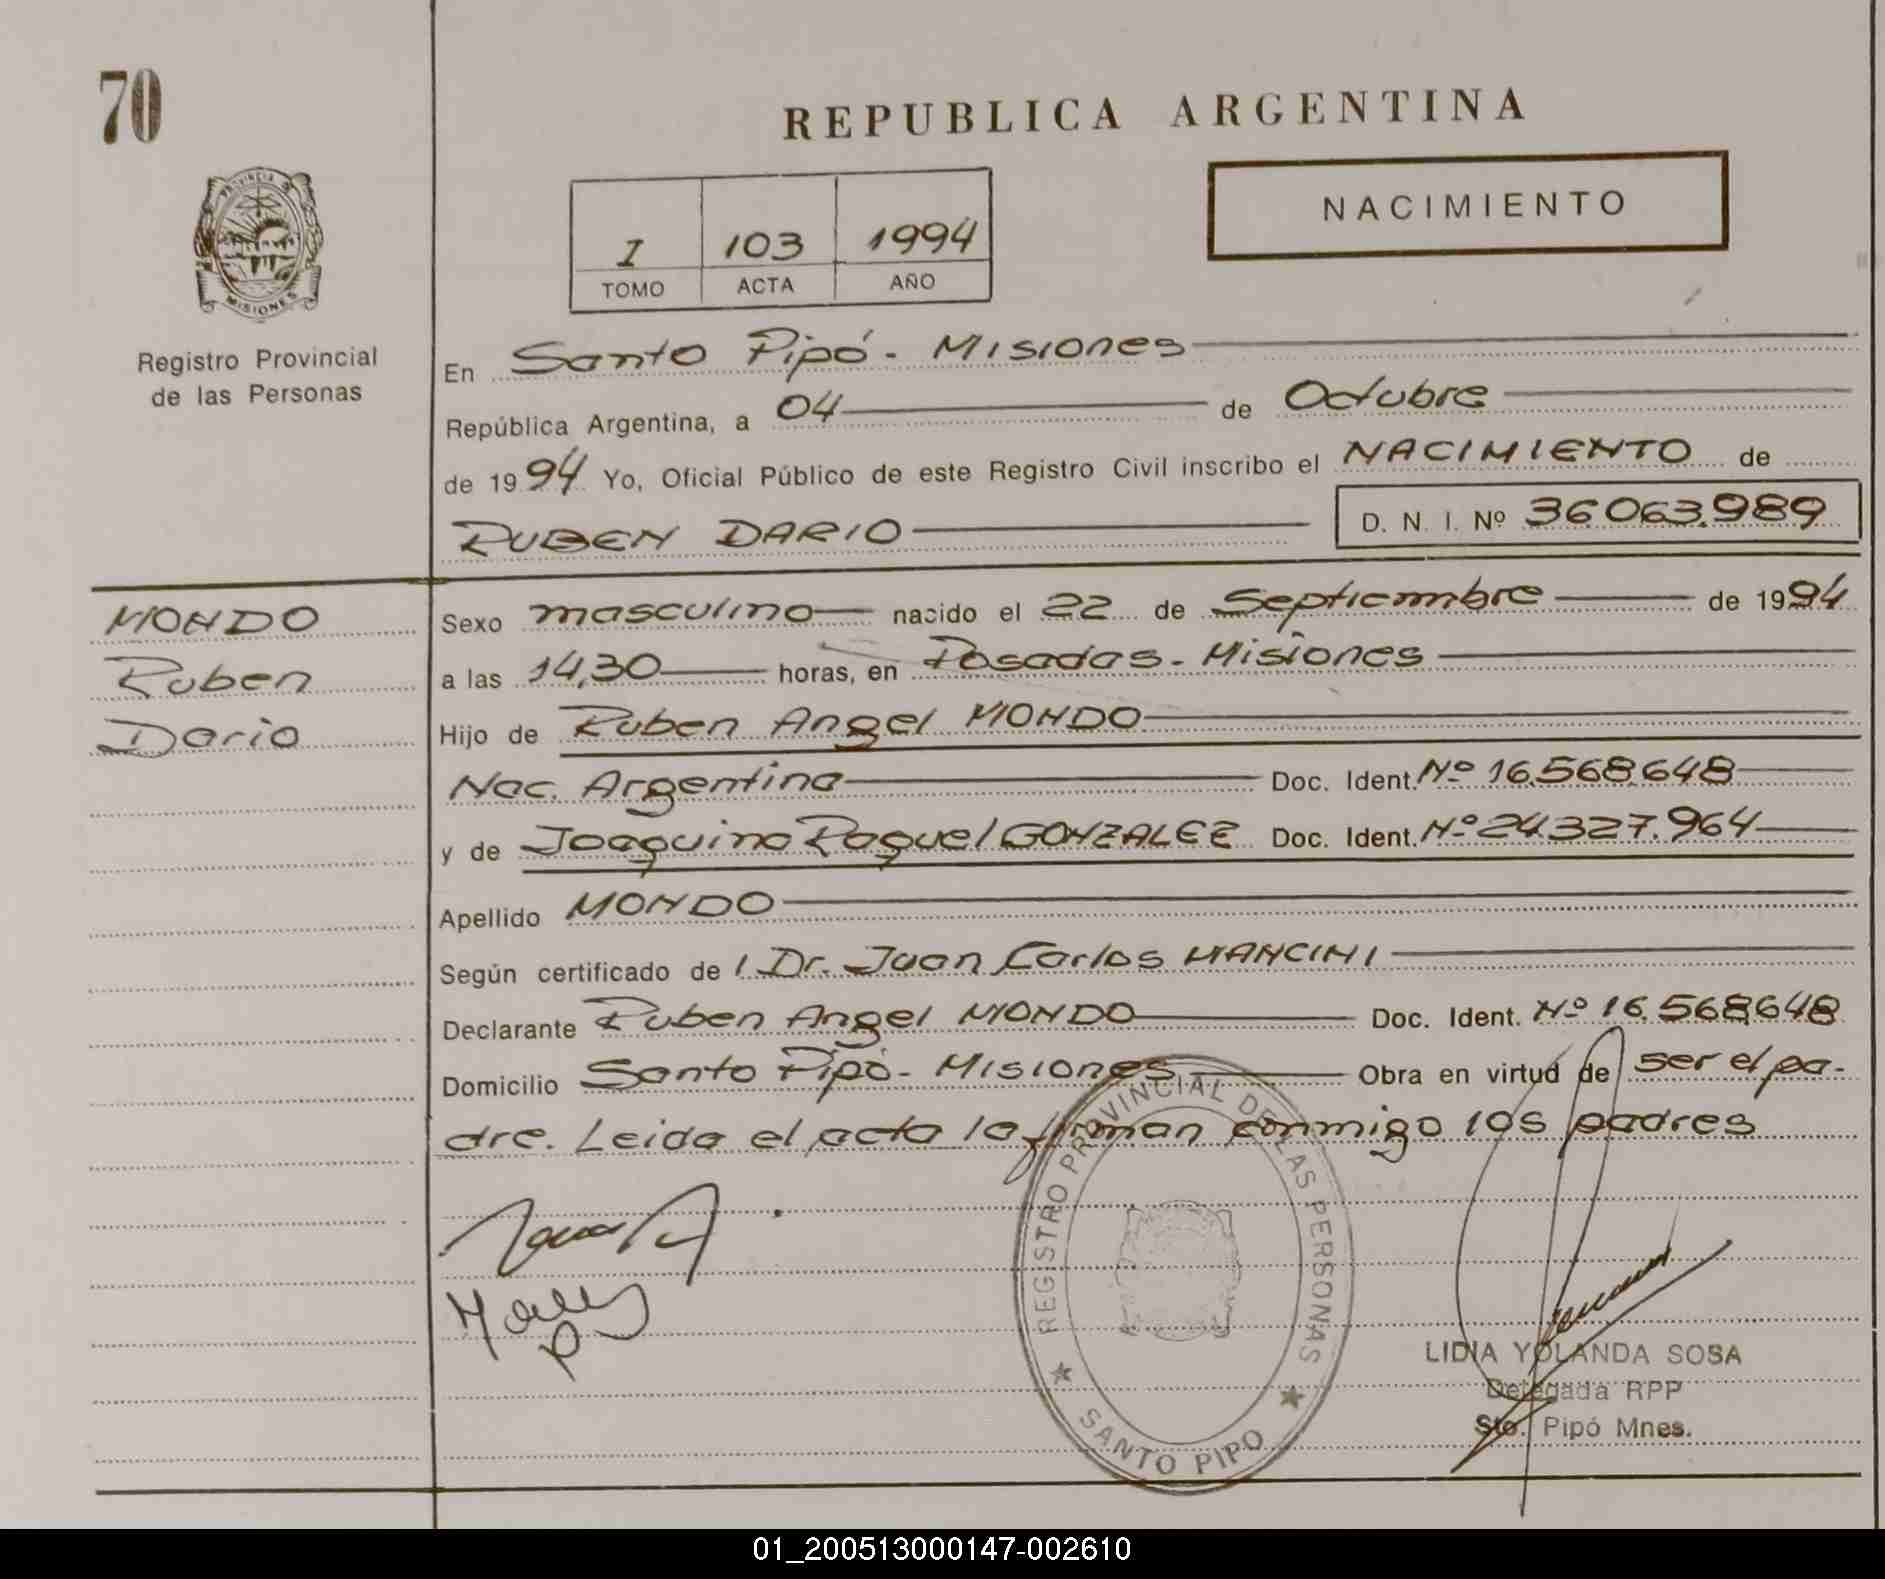 70
REPUBLICA ARGENTINA
PROVINCIA DE
MISIONES
Registro Provincial
de las Personas
I 103 1994
TOMO ACTA AÑO
NACIMIENTO
En Santo Pipó - Misiones
República Argentina, a 04 de Octubre
de 1994 Yo, Oficial Público de este Registro Civil inscribo el NACIMIENTO de
RUBEN DARIO D. N. I. Nº 36.063.989
MONDO
Ruben
Dario
Sexo masculino nacido el 22 de Septiembre de 1994
a las 14,30 horas, en Posadas - Misiones
Hijo de Ruben Angel MONDO
Nac. Argentina Doc. Ident. Nº 16.568.648
y de Joaquina Raquel GONZALEZ Doc. Ident. Nº 24.327.964
Apellido MONDO
Según certificado de l Dr. Juan Carlos MANCINI
Declarante Ruben Angel MONDO Doc. Ident. Nº 16.568.648
Domicilio Santo Pipó - Misiones Obra en virtud de ser el pa-
dre. Leida el acta la firman conmigo los padres
REGISTRO PROVINCIAL DE LAS PERSONAS
SANTO PIPO
LIDIA YOLANDA SOSA
Delegada RPP
Sto. Pipó Mnes.
01_200513000147-002610